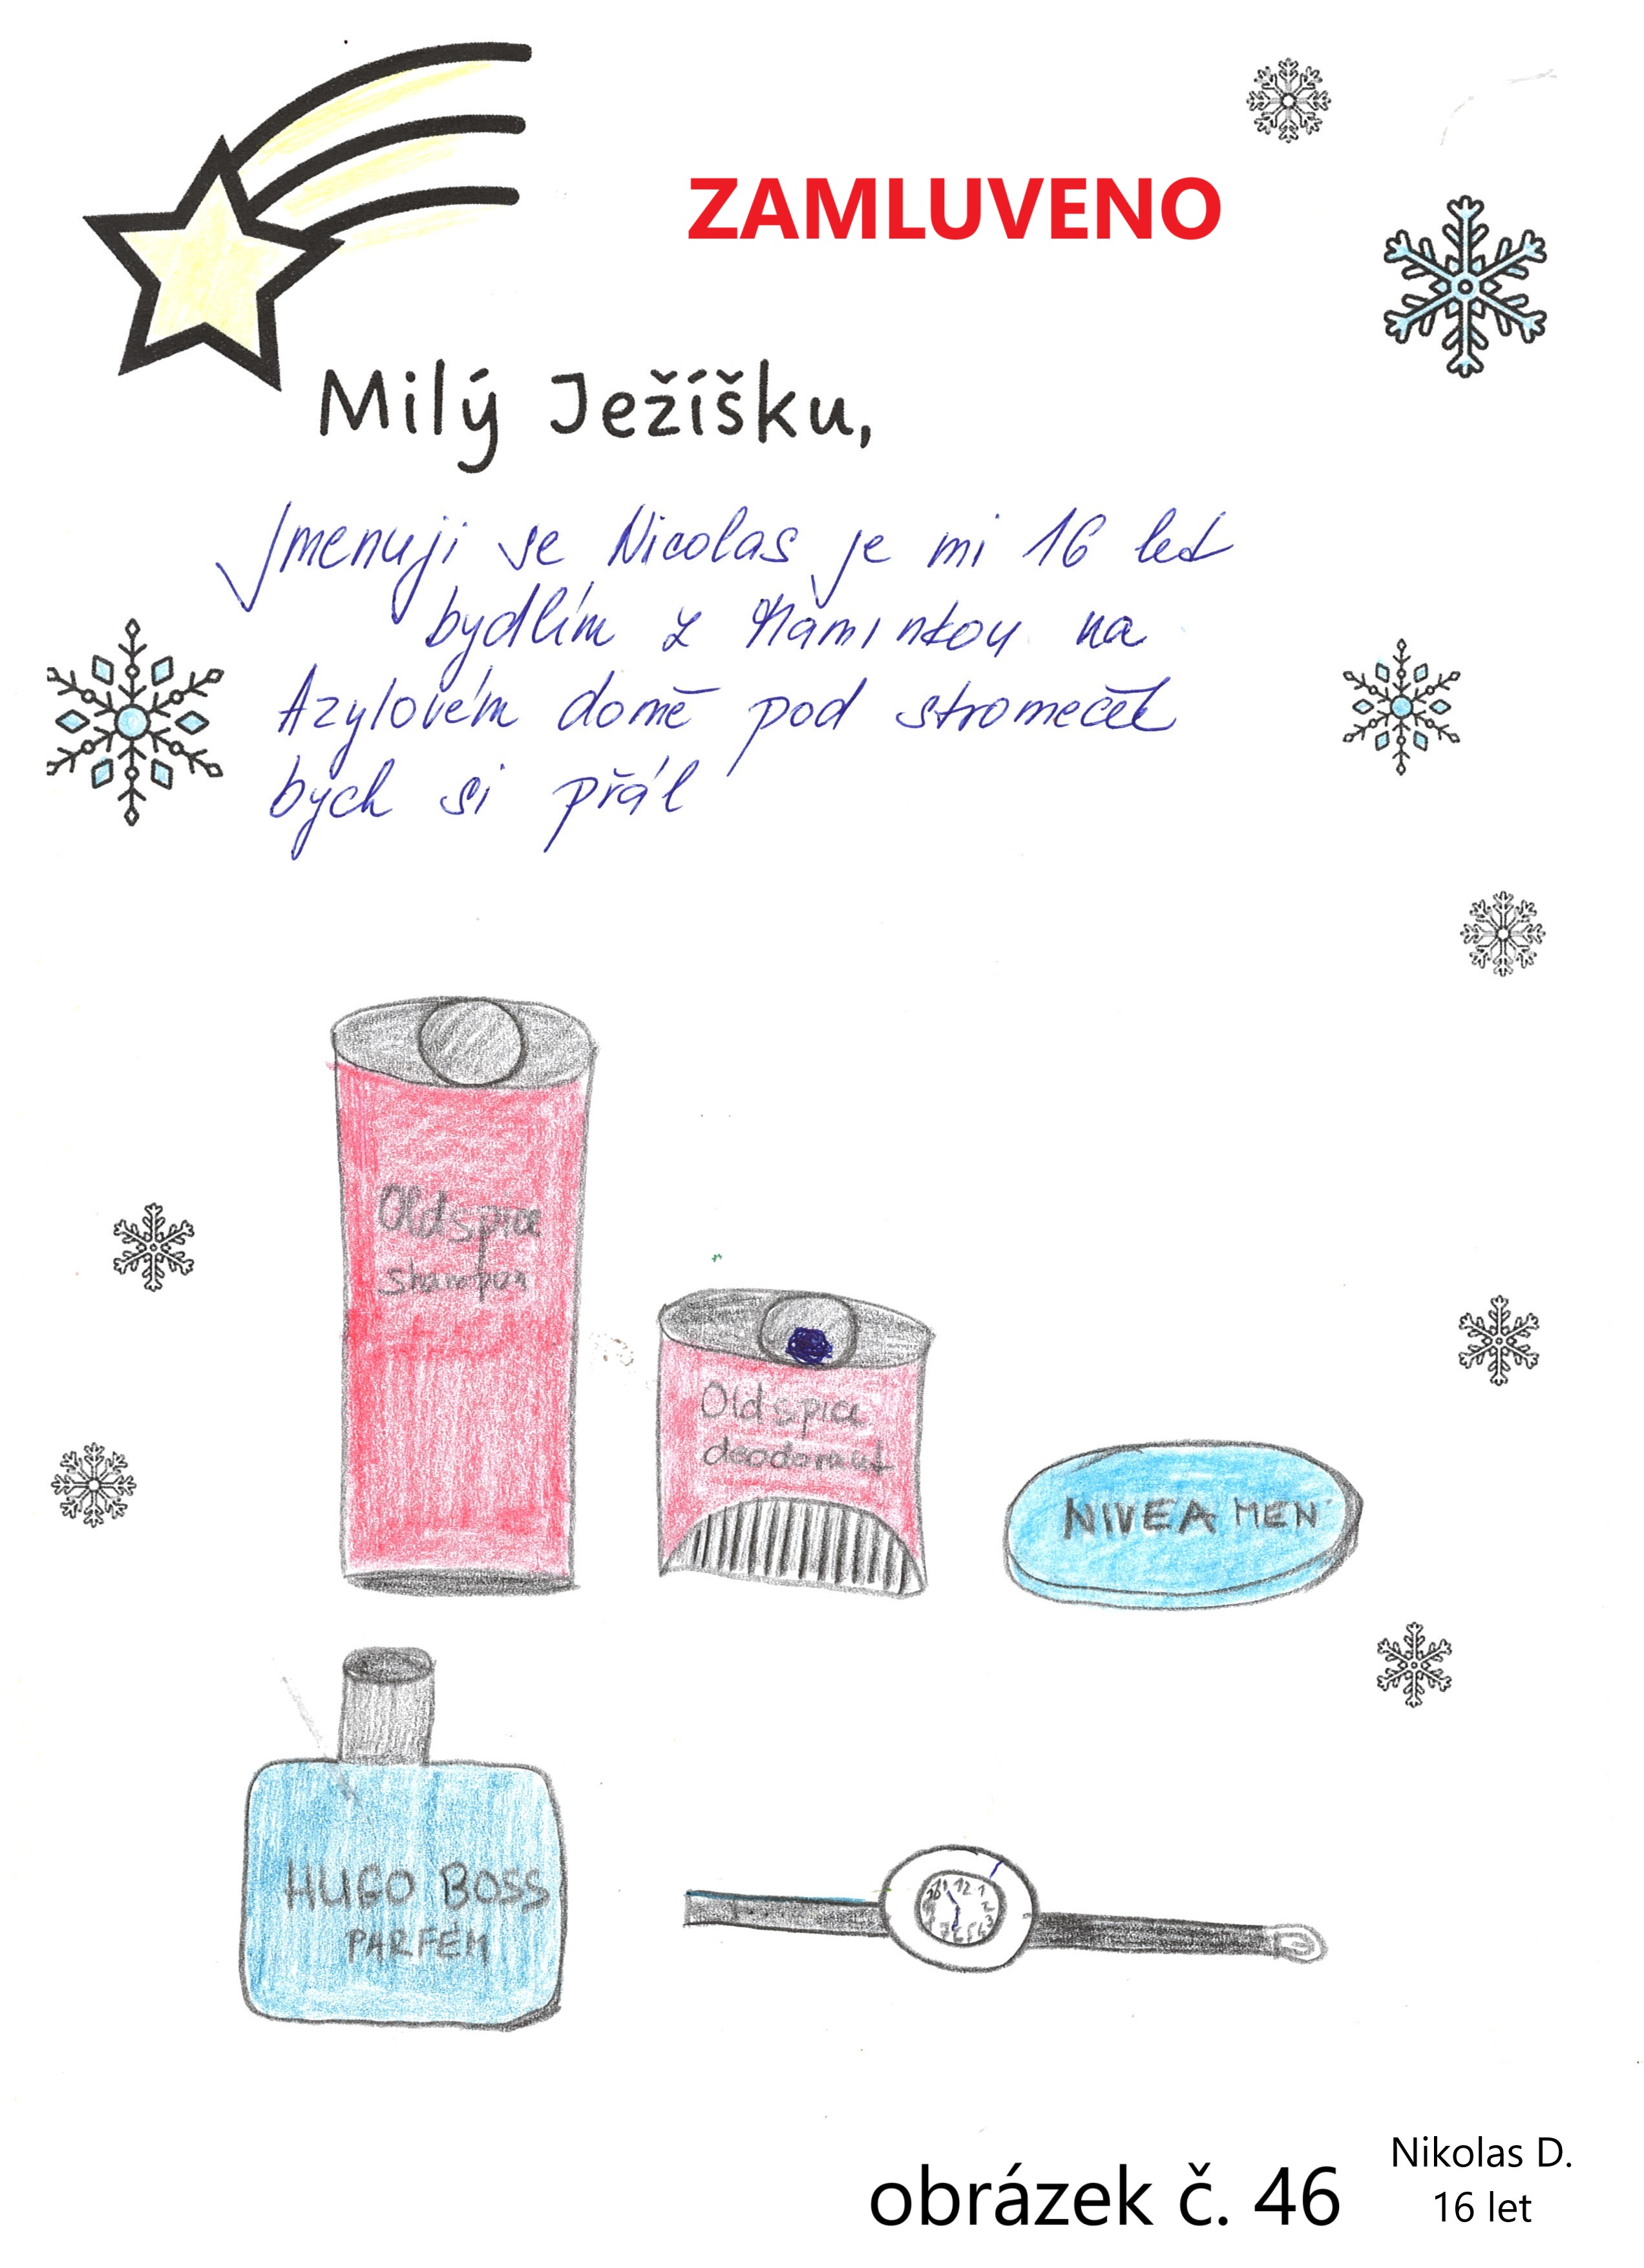 ZAMLUVENO
Milý Ježíšku,
Jmenuji se Nicolas je mi 16 let
bydlím z Maminkou na
Azylovém domě pod stromeček
bych si přál
Oldspice
shampon
Oldspice
deodorant
NIVEA MEN
HUGO BOSS
PARFÉM
12 1
2
obrázek č. 46
Nikolas D.
16 let